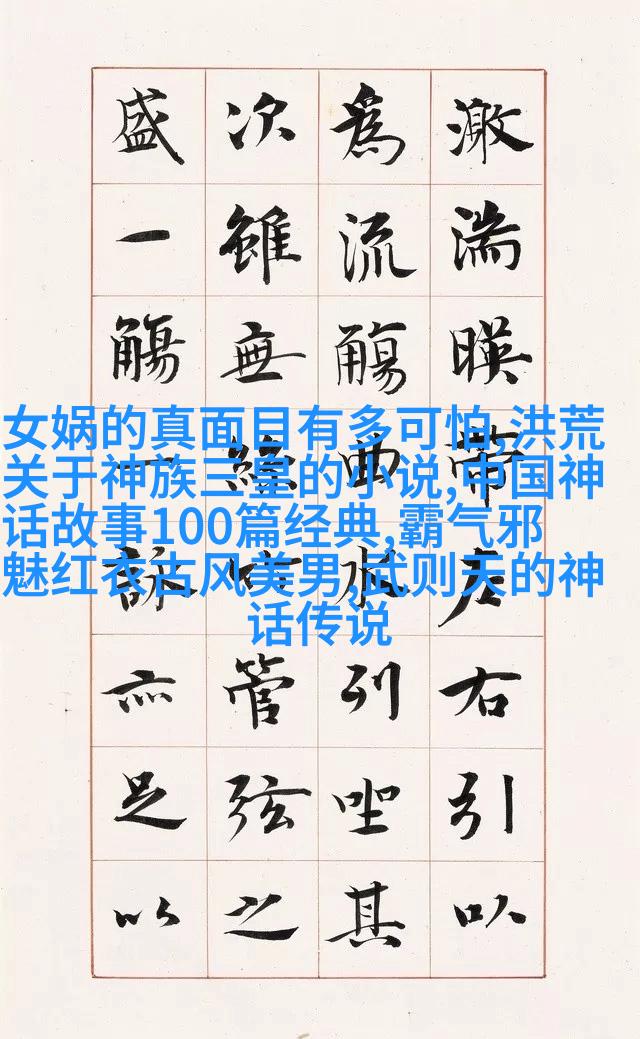 激湍暎帶左右引以
為流觴曲水列坐其
次雖無絲竹管弦之
盛一觴一詠亦足以
女娲的真面目有多可怕,洪荒
关于神族三皇的小说,中国神
话故事100篇经典,霸气邪
魅红衣古风美男,武则天的神
话传说